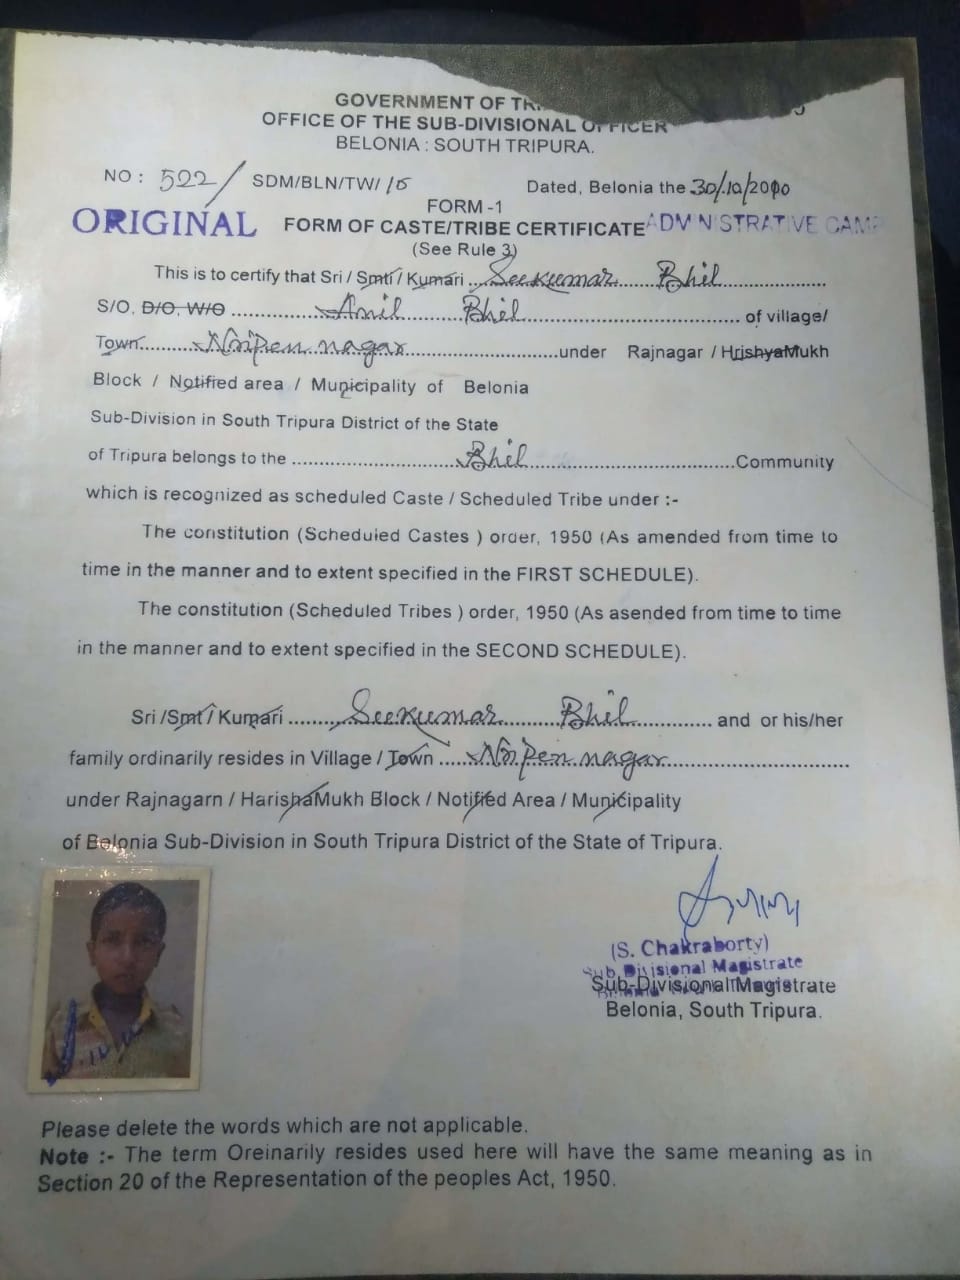 GOVERNMENT OF
OFFICE OF THE SUB-DIVISIONAL OFFICER
BELONIA : SOUTH TRIPURA.
NO : 522/ SDM/BLN/TW/10 Dated, Belonia the 30/10/2010
FORM -1
ORIGINAL FORM OF CASTE/TRIBE CERTIFICATE ADMINISTRATIVE CAMP
(See Rule 3)
This is to certify that Sri / Smti / Kumari ... Seekumar Bhil
S/O, D/O, W/O ... Anil Bhil ... of village/
Town ... Nripen nagar ... under Rajnagar / HrishyaMukh
Block / Notified area / Municipality of Belonia
Sub-Division in South Tripura District of the State
of Tripura belongs to the ... Bhil ... Community
which is recognized as scheduled Caste / Scheduled Tribe under :-
The constitution (Scheduled Castes ) order, 1950 (As amended from time to
time in the manner and to extent specified in the FIRST SCHEDULE).
The constitution (Scheduled Tribes ) order, 1950 (As asended from time to time
in the manner and to extent specified in the SECOND SCHEDULE).
Sri /Smt / Kumari ... Seekumar Bhil ... and or his/her
family ordinarily resides in Village / Town ... Nripen nagar
under Rajnagarn / HarishaMukh Block / Notified Area / Municipality
of Belonia Sub-Division in South Tripura District of the State of Tripura.
(S. Chakraborty)
Sub Divisional Magistrate
Sub-Divisional Magistrate
Belonia, South Tripura.
Please delete the words which are not applicable.
Note :- The term Oreinarily resides used here will have the same meaning as in
Section 20 of the Representation of the peoples Act, 1950.